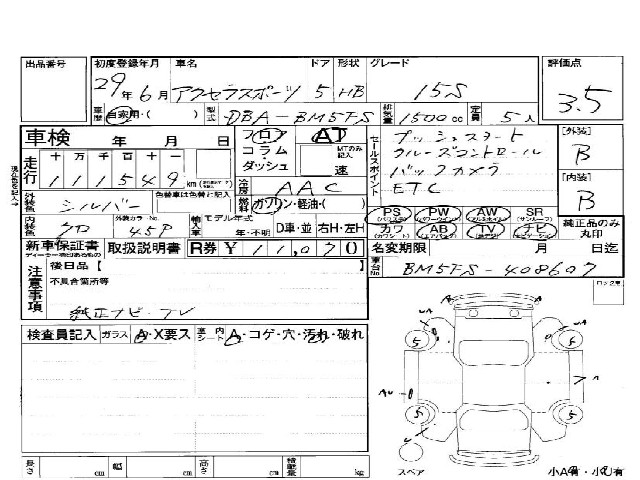 出品番号 初度登録年月 車名 ドア 形状 グレード 評価点
29年 6月 アクセラスポーツ 5 HB 15S 3.5
車歴 自家用・( ) 型式 DBA-BM5FS 排気量 1500cc 定員 5人
車検 年 月 日 フロア AT セールスポイント プッシュスタート [外装]
走行 十万千百十一 コラム・ダッシュ MTのみ記入 速 クルーズコントロール B
111549km 冷房 AAC バックカメラ [内装]
外装色 シルバー 色替車は元色を記入 燃料 ガソリン・軽油・( ) ETC B
内装色 クロ 外装カラーNo. 45P 輸入車 モデル年式 年・不明 D車・並 右H・左H PS PW AW SR
カワ AB TV ナビ 純正品のみ丸印
新車保証書 取扱説明書 R券 ¥11,070 名変期限 月 日迄
車台No. BM5FS-408607
注意事項 後日品【
不具合箇所等
純正ナビ・TV
ロック用
検査員記入 ガラス A・X要ス 室内シート A・コゲ・穴・汚れ・破れ
UA A
5 5
AU A
5 5
長さ cm 幅 cm 高さ cm 積載量 kg スペア 小A有・小U有